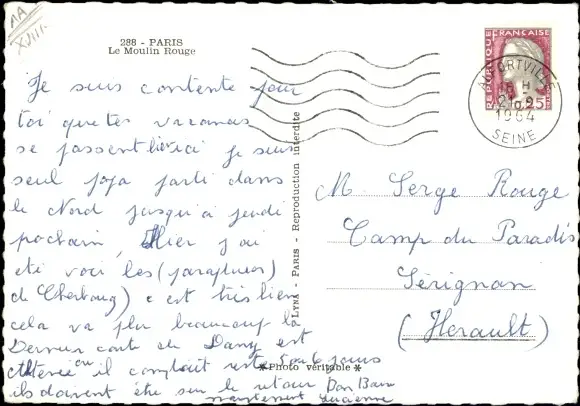 AA
XVIII
288 - PARIS
Le Moulin Rouge
Je suis contente pour
toi que tes vacances
se passent bien ici je suis
seul jojo parti dans
le Nord jusqu'à jeudi
prochain, Hier j'ai
été voir les (parapluies)
de Cherbourg) c est très bien
cela va plu beaucoup là
Dernière carte de Dany est
il comptait rester 5 ou 6 jours
ils doivent être sur le retour Bon Baiser
maintenant Lucienne
LYNA - PARIS - Reproduction interdite
*Photo véritable*
REPUBLIQUE FRANÇAISE
0,25
ALFORTVILLE
18 H
21-9
1964
SEINE
M. Serge Rouge
Camp du Paradis
Sérignan
(Herault)